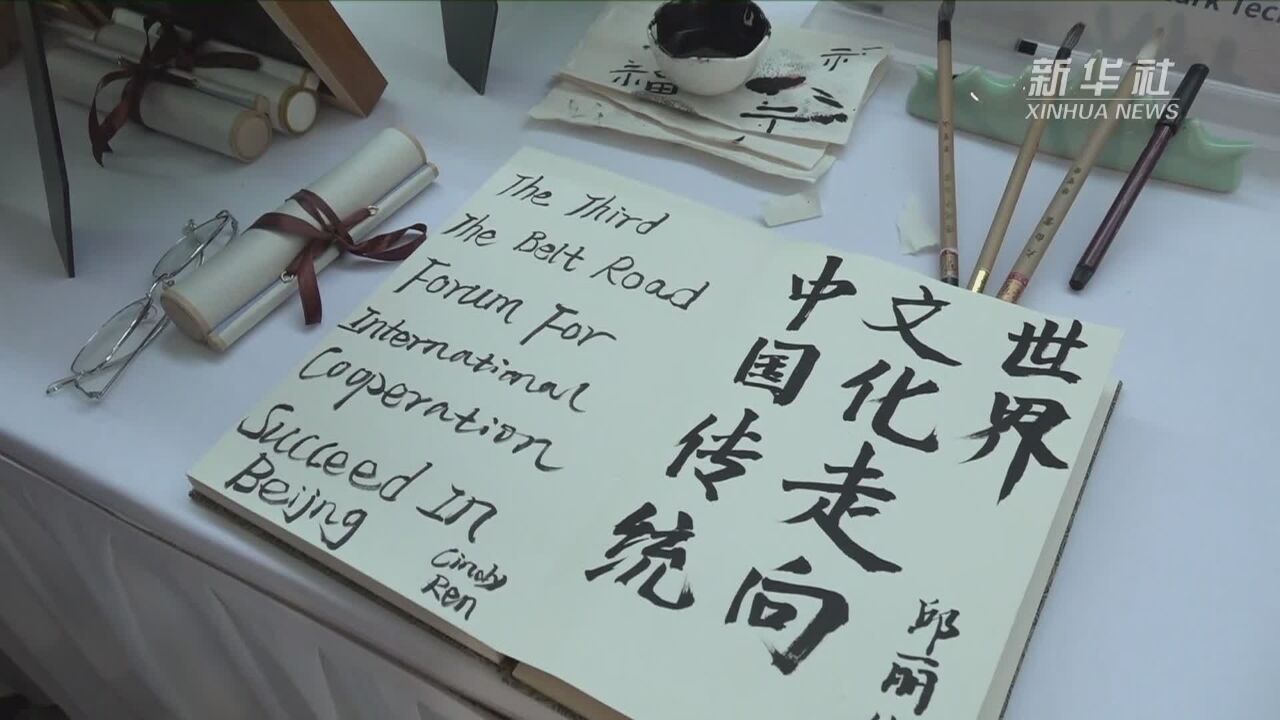 The Third
The Belt Road
Forum For
International
Cooperation
Succeed In
Beijng
Cindy
Ren
中国传统
文化走向
世界
邱丽
福
新华社
XINHUA NEWS